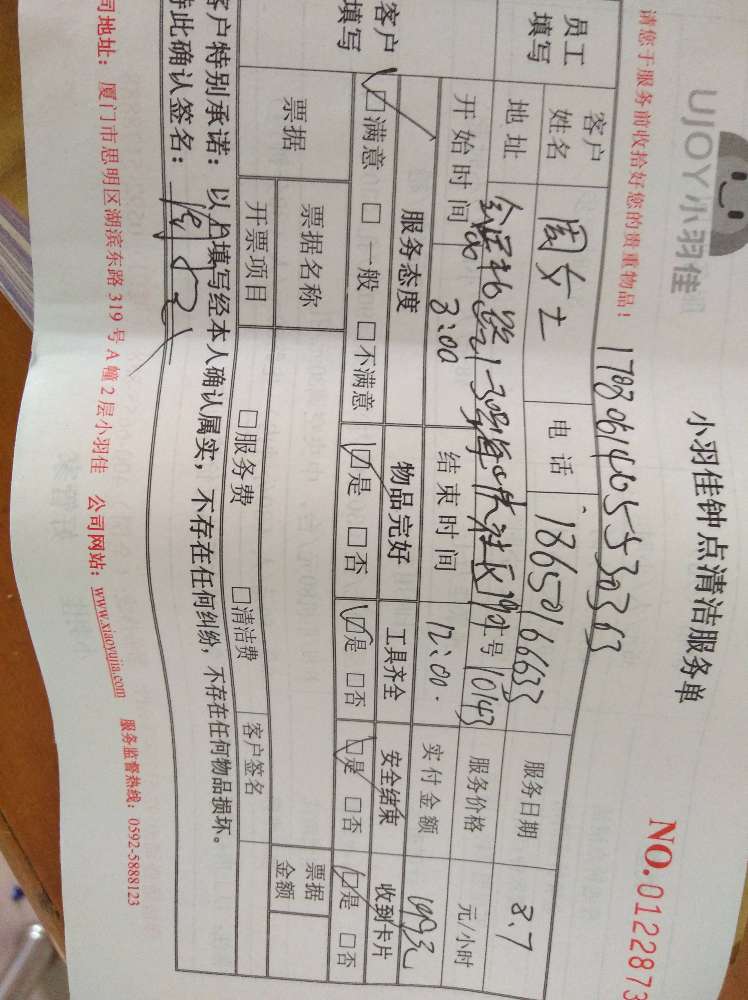 UJOY小羽佳
小羽佳钟点清洁服务单
NO.0122873
请您于服务前收拾好您的贵重物品!
员工填写
客户姓名 周女士 电话 18650166633 服务日期 8.7
地址 社区 号 10143 服务价格 元/小时
开始时间 8:00 结束时间 12:00. 实付金额
客户填写
服务态度 物品完好 工具齐全 安全结束 收到卡片
☑满意 □一般 □不满意 ☑是 □否 ☑是 □否 ☑是 □否 ☑是 □否
票据 票据名称 票据金额
开票项目 □服务费 □清洁费 客户签名
客户特别承诺:以上填写经本人确认属实,不存在任何纠纷,不存在任何物品损坏。
特此确认签名:
司地址:厦门市思明区湖滨东路319号A幢2层小羽佳 公司网站:www.xiaoyujia.com 服务监督热线:0592-5888123